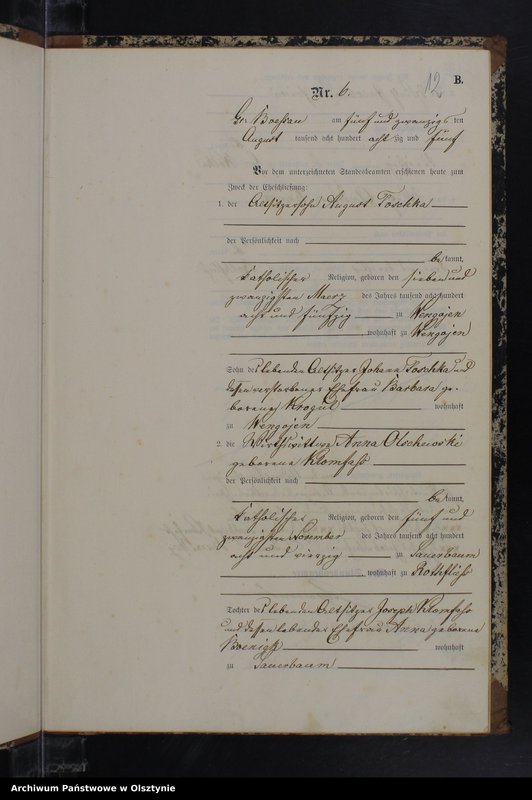 12 B.
Nr. 6.
Gr. Boessau am fünf und zwanzigsten
August tausend acht hundert achtzig und fünf
Vor dem unterzeichneten Standesbeamten erschienen heute zum
Zweck der Eheschließung:
1. der Altsitzersohn August Poschka
der Persönlichkeit nach
bekannt,
katholischer Religion, geboren den sieben und
zwanzigsten Maerz des Jahres tausend acht hundert
acht und fünfzig zu Wengojen
, wohnhaft zu Wengojen
Sohn des lebenden Altsitzer Johann Poschka und
dessen verstorbener Ehefrau Barbara ge-
borene Krogul wohnhaft
zu Wengojen
2. die Wirthswittwe Anna Olschewski
geborene Klomfass
der Persönlichkeit nach
bekannt,
katholischer Religion, geboren den fünf und
zwanzigsten November des Jahres tausend acht hundert
acht und vierzig zu Sauerbaum
, wohnhaft zu Rothfließ
Tochter des lebenden Altsitzer Joseph Klomfass
und dessen lebender Ehefrau Anna geborene
Boenigk wohnhaft
zu Sauerbaum
Archiwum Państwowe w Olsztynie